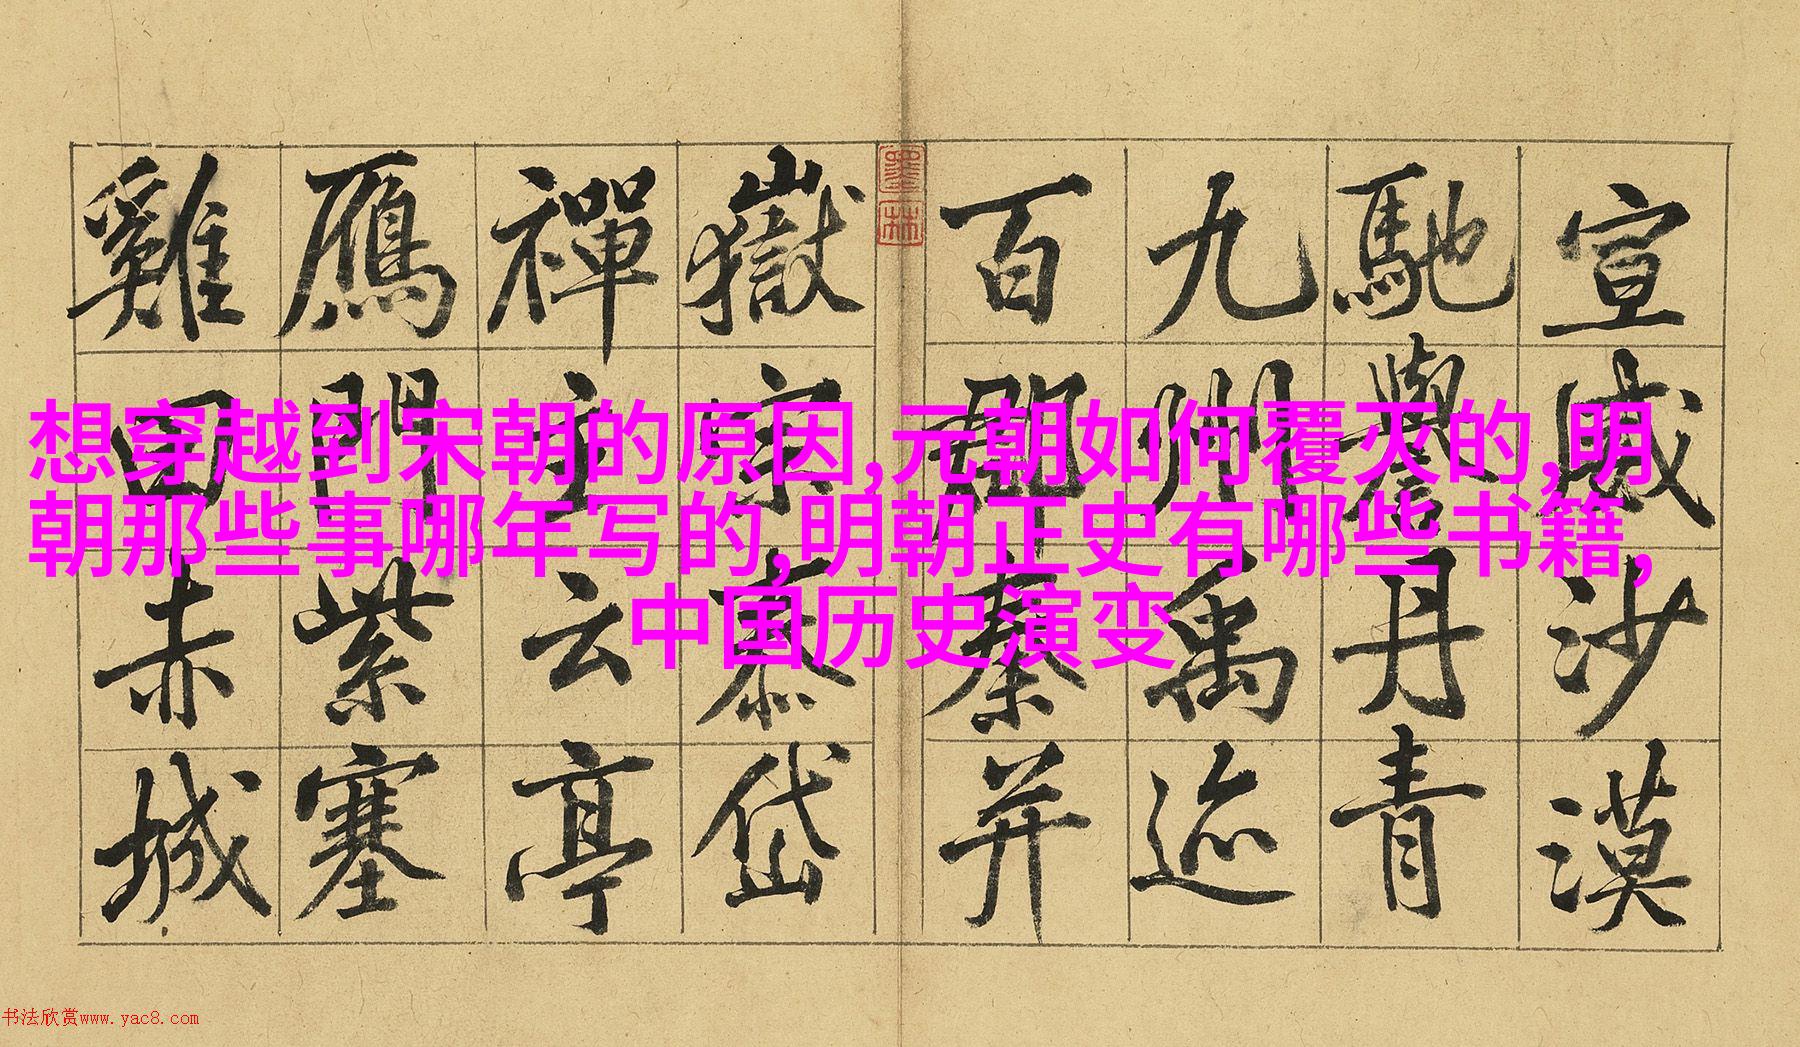 宣威沙漠
馳譽丹青
九州禹迹
百郡秦并
墨林
嶽宗泰岱
禪主云亭
鴈門紫塞
雞田赤城
想穿越到宋朝的原因,元朝如何覆灭的,明
朝那些事哪年写的,明朝正史有哪些书籍,
中国历史演变
书法欣赏www.yac8.com